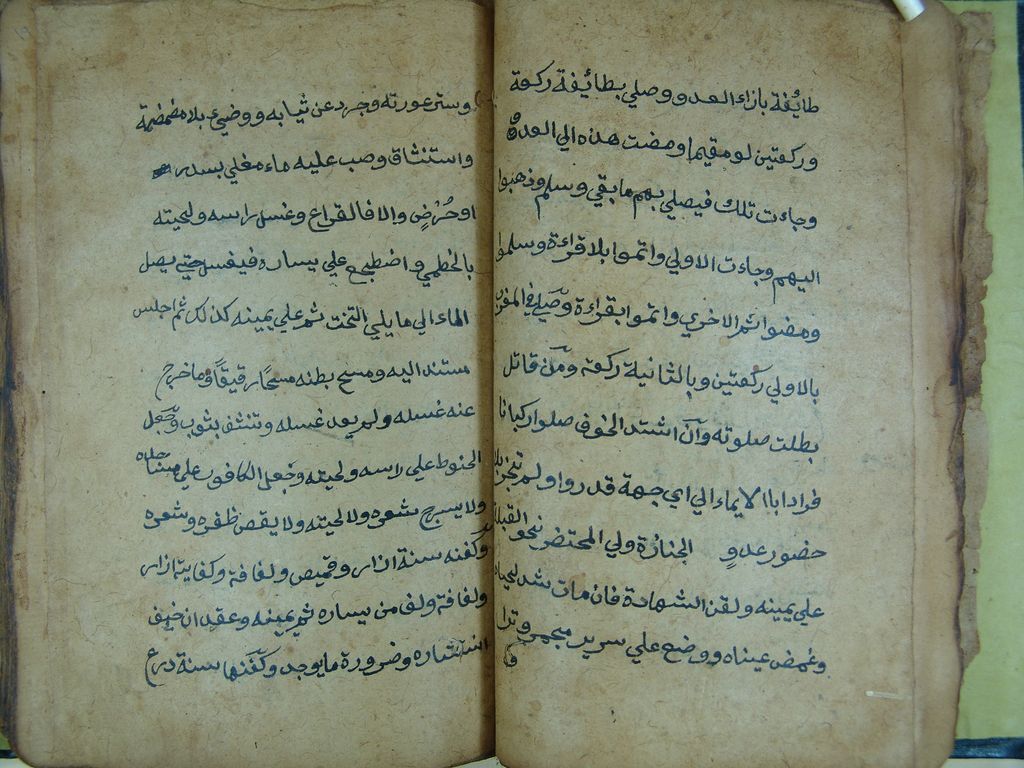 طائفة بازاء العدو وصلي بطائفة ركعة
وركعتين لو مقيما ومضت هذه الي العدو
وجاءت تلك فيصلي بهم ما بقي وسلم وذهبوا
اليهم وجاءت الاولي واتموا بلا قراءة وسلموا
ومضوا ثم الاخري واتموا بقراءة وصلي في المغرب
بالاولي ركعتين وبالثانية ركعة ومن قاتل
بطلت صلوته وان اشتد الخوف صلوا ركبانا
فرادا بالايماء الي اي جهة قدروا ولم تجز بلا
حضور عدو الجنازة ولي المحتضر نحو القبلة
علي يمينه ولقن الشهادة فان مات شد لحياه
وغمض عيناه ووضع علي سرير مجمر وترا
وستر عورته وجرد عن ثيابه ووضيء بلا مضمضة
واستنشاق وصب عليه ماء مغلي بسدر
او حرض والا فالقراع وغسل راسه ولحيته
بالخطمي واضطجع علي يساره فيغسل حتي يصل
الماء الي ما يلي التخت ثم علي يمينه كذلك ثم اجلس
مستندا اليه ومسح بطنه مسحا رقيقا وما خرج
عنه غسله ولم يعد غسله وتنشف بثوب وجعل
الحنوط علي راسه ولحيته وجعل الكافور علي مساجده
ولا يسرح شعره ولا لحيته ولا يقص ظفره وشعره
وكفنه سنة ازار وقميص ولفافة وكفاية ازار
ولفافة ولف من يساره ثم يمينه وعقد ان خيف
انتشاره وضرورة ما يوجد وكفنها سنة درع